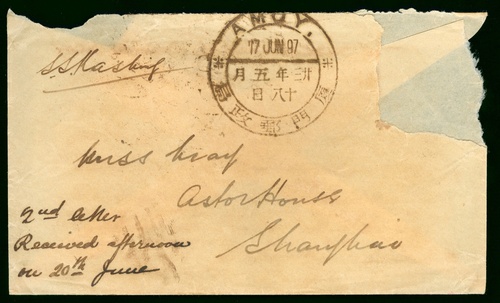 AMOY.
17 JUN 97
廿三年五月
十八日
廈門郵政局
SS
Miss
Astor House
Shanghai
2nd letter
Received afternoon
on 20th June